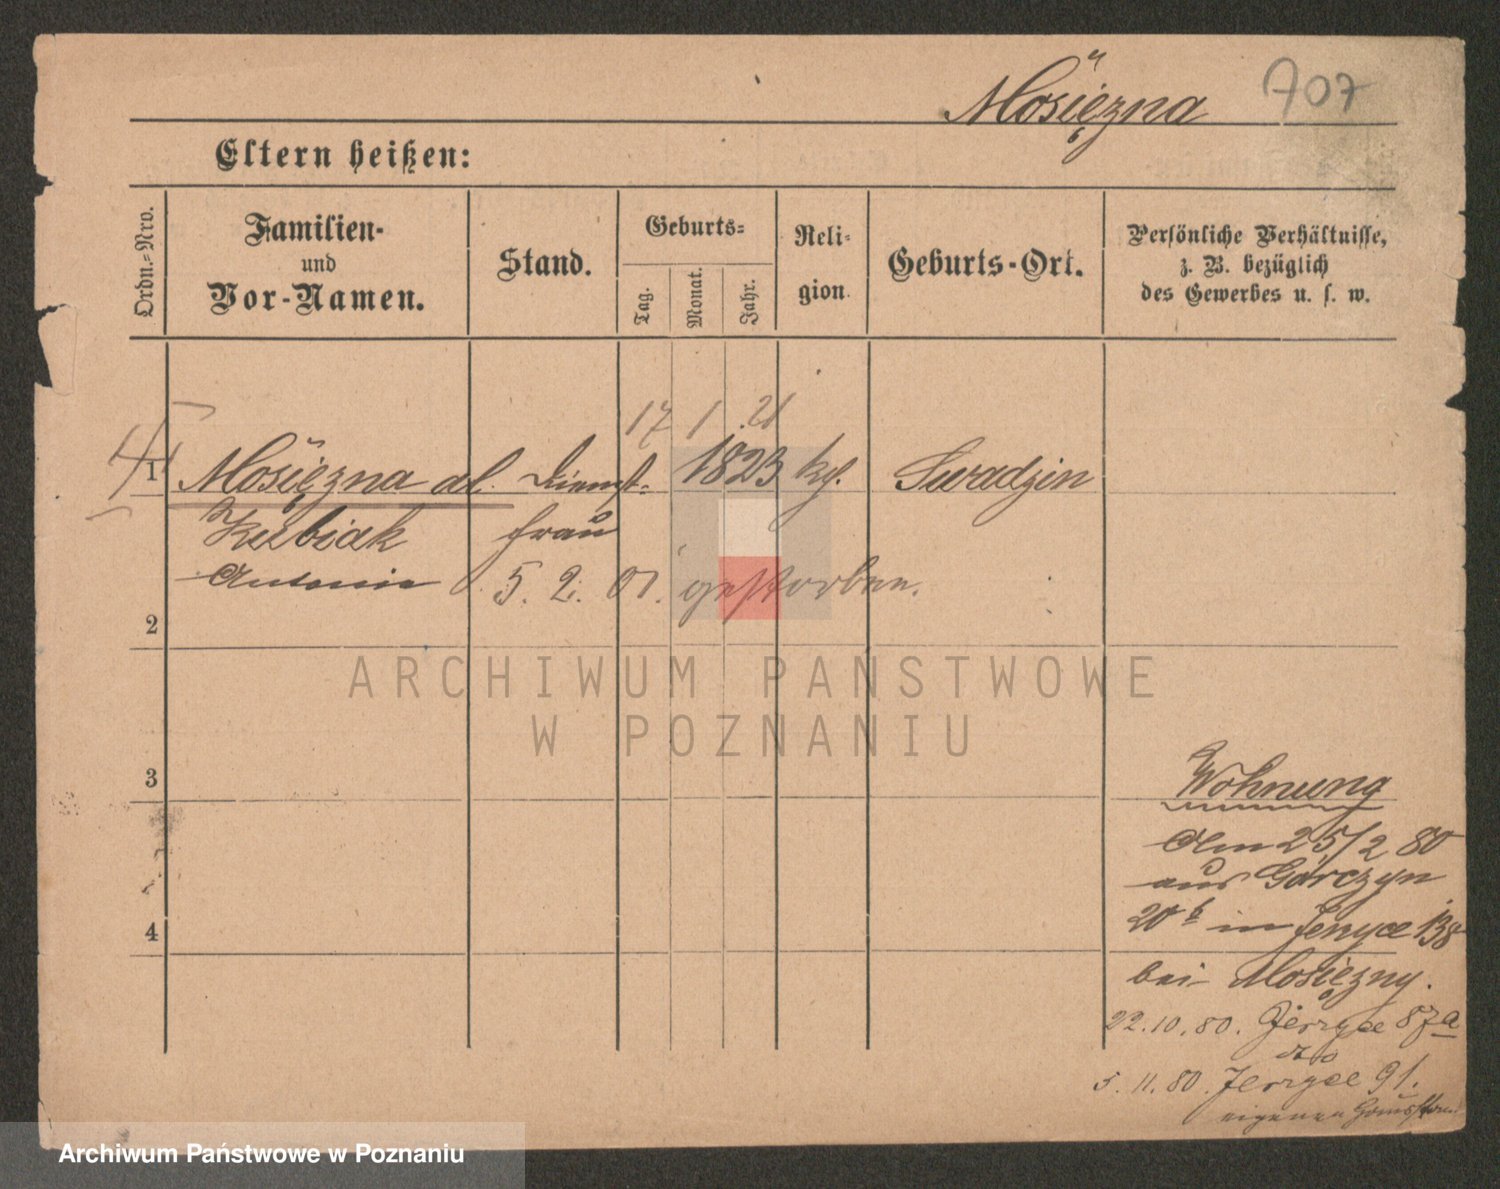 Mosiężna 707
Eltern heißen:
Ordn.=Nro.
Familien-
und
Vor-Namen.
Stand.
Geburts=
Tag.
Monat.
Jahr.
Reli-
gion
Geburts-Ort.
Persönliche Verhältnisse,
z. B. bezüglich
des Gewerbes u. s. w.
17 1 21
1 Mosiężna al. Dienst= 1823 kt. Swadzin
Kubiak frau
Antonie 5. 2. 01. gestorben.
2
ARCHIWUM PAŃSTWOWE
W POZNANIU
3
Wohnung
Am 25/2 80
aus Górczyn
20 b in Jerzyce 138
4
bei Mosiężny.
22.10.80. Jerzyce 87a
dto
5. 11. 80. Jerzyce 91.
eigenen
Archiwum Państwowe w Poznaniu